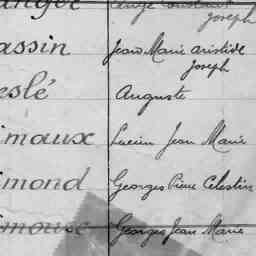 Joseph
assin Jean Marie Aristide
Joseph
eslé Auguste
imaux Lucien Jean Marie
imond Georges Pierre Célestin
imouse Georges Jean Marie